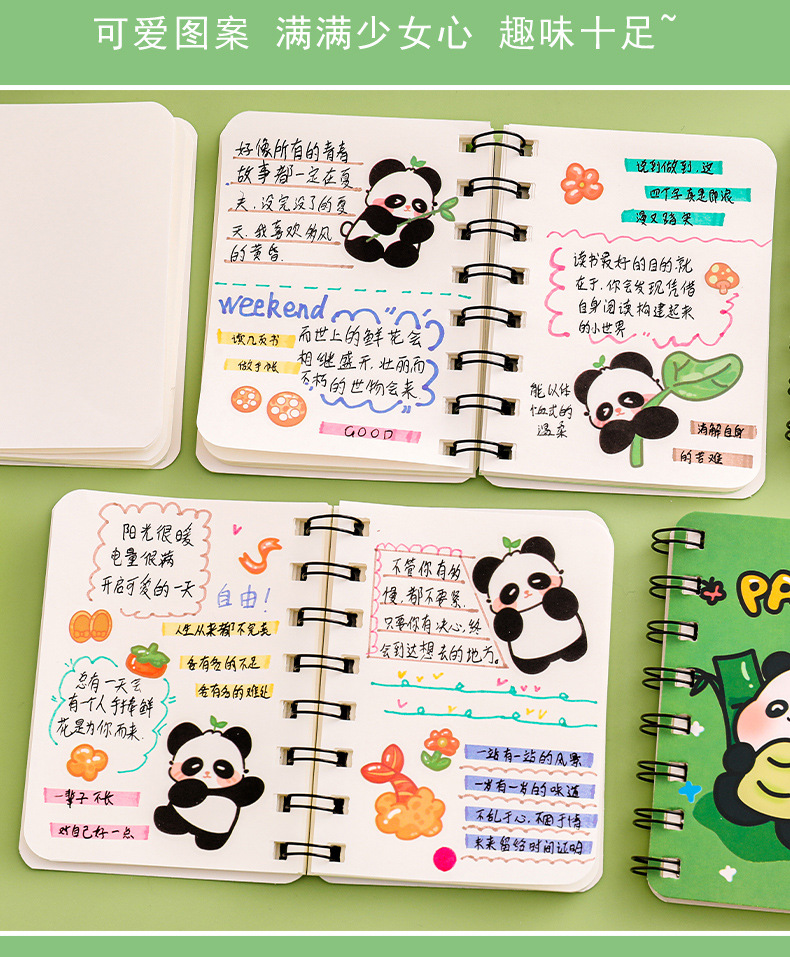 可爱图案 满满少女心 趣味十足~
好像所有的青春
故事都一定在夏
天,没完没了的夏
天.我喜欢多风
的黄昏.
weekend
读几页书
做手帐
而世上的鲜花会
相继盛开,壮丽而
不朽的世物会来.
GOOD
说到做到,这
四个字真是即浪
漫又踏实
读书最好的目的,就
在于,你会发现凭借
自身阅读构建起来
的小世界
能以体
恤式的
温柔
消解自身
的苦难
阳光很暖
电量很满
开启可爱的一天
自由!
人生从来都不完美
各有各的不足
各有各的难处
总有一天会
有个人手捧鲜
花是为你而来.
一辈子不长
对自己好一点
不管你有多
慢,都不要紧.
只要你有决心,终
会到达想去的地方。
一站有一站的风景
一岁有一岁的味道
不乱于心,不困于情
未来留给时间证明
PA